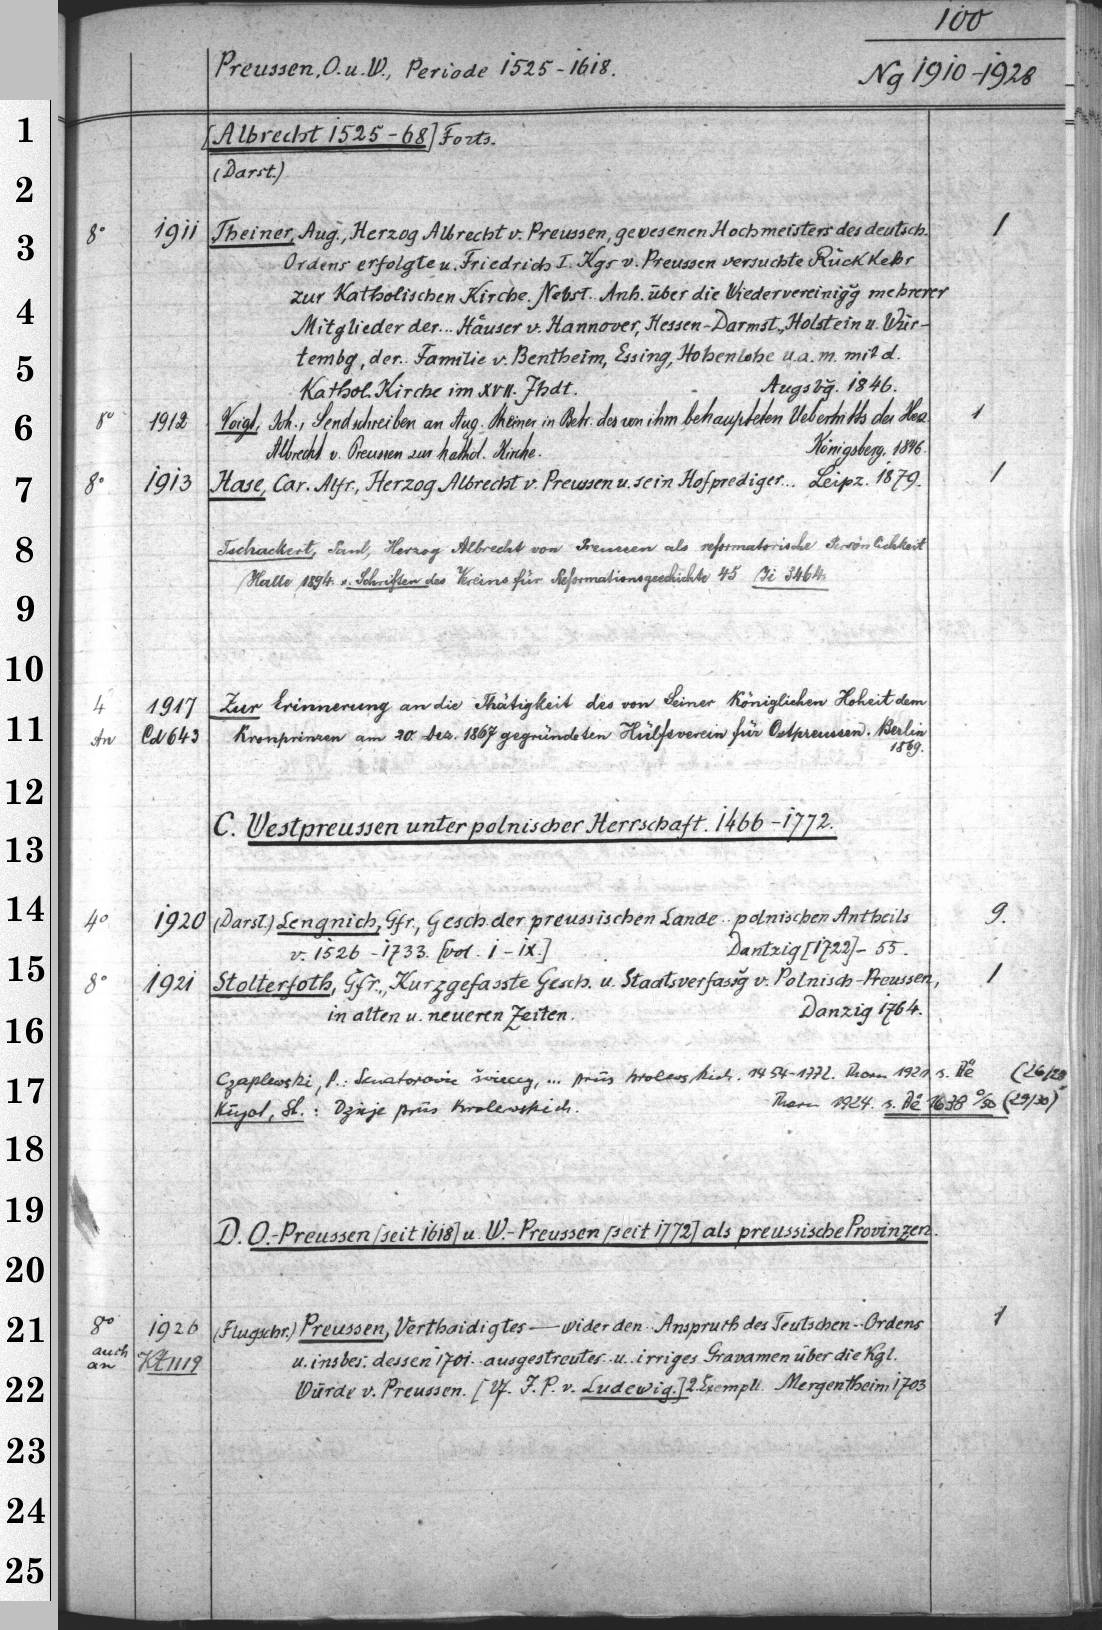 100
Preussen, O. u. W., Periode 1525-1618. Ng 1910-1928
1
[Albrecht 1525-68] Forts.
2
(Darst.)
3
8° 1911 Theiner, Aug., Herzog Albrecht v. Preussen, gewesenen Hochmeisters des deutsch. 1
Ordens erfolgte u. Friedrich I. Kgs v. Preussen versuchte Rückkehr
4
zur Katholischen Kirche. Nebst.. Anh. über die Wiedervereinigg mehrerer
Mitglieder der... Häuser v. Hannover, Hessen-Darmst., Holstein u. Wür-
5
tembg, der.. Familie v. Bentheim, Essing, Hohenlohe u. a. m. mit d.
Kathol. Kirche im XVII. Jhdt. Augsbg. 1846.
6
8° 1912 Voigt, Joh., Sendschreiben an Aug. Theiner in Betr. des von ihm behaupteten Uebertritts des Herz. 1
Albrecht v. Preussen zur kathol. Kirche. Königsberg, 1846.
7
8° 1913 Hase, Car. Alfr., Herzog Albrecht v. Preussen u. sein Hofprediger... Leipz. 1879. 1
8
Tschackert, Paul, Herzog Albrecht von Preussen als reformatorische Persönlichkeit
Halle 1894. s. Schriften des Vereins für Reformationsgeschichte 45 Ji 3464.
9
10
4° 1917 Zur Erinnerung an die Thätigkeit des von Seiner Königlichen Hoheit dem
11
An Cd 643 Kronprinzen am 20. Dez. 1867 gegründeten Hülfsverein für Ostpreussen. Berlin
1869.
12
C. Westpreussen unter polnischer Herrschaft. 1466-1772.
13
14
4° 1920 (Darst.) Lengnich, Gfr., Gesch. der preussischen Lande.. polnischen Antheils 9.
v. 1526-1733. [vol. I-IX.] Dantzig [1722]-55.
15
8° 1921 Stolterfoth, Gfr., Kurzgefasste Gesch. u. Staatsverfassg v. Polnisch-Preussen, 1
in alten u. neueren Zeiten. Danzig 1764.
16
17
Czaplewski, P.: Senatorowie świeccy, ... prus królewskich. 1454-1772. Thorn 1921 s. (26/28)
Kujot, St.: Dzieje prus królewskich. Thorn 1924. s. 1638 (29/30)
18
19
D. O.-Preussen [seit 1618] u. W.-Preussen [seit 1772] als preussische Provinzen.
20
21
8° 1926 (Flugschr.) Preussen, Verthaidigtes — wider den.. Anspruch des Teutschen-Ordens 1
auch
an Kt 1119 u. insbes. dessen 1701.. ausgestreutes.. u.. irriges Gravamen über die Kgl.
22
Würde v. Preussen. [Vf. J. P. v. Ludewig.] 2. Exempll. Mergentheim 1703
23
24
25